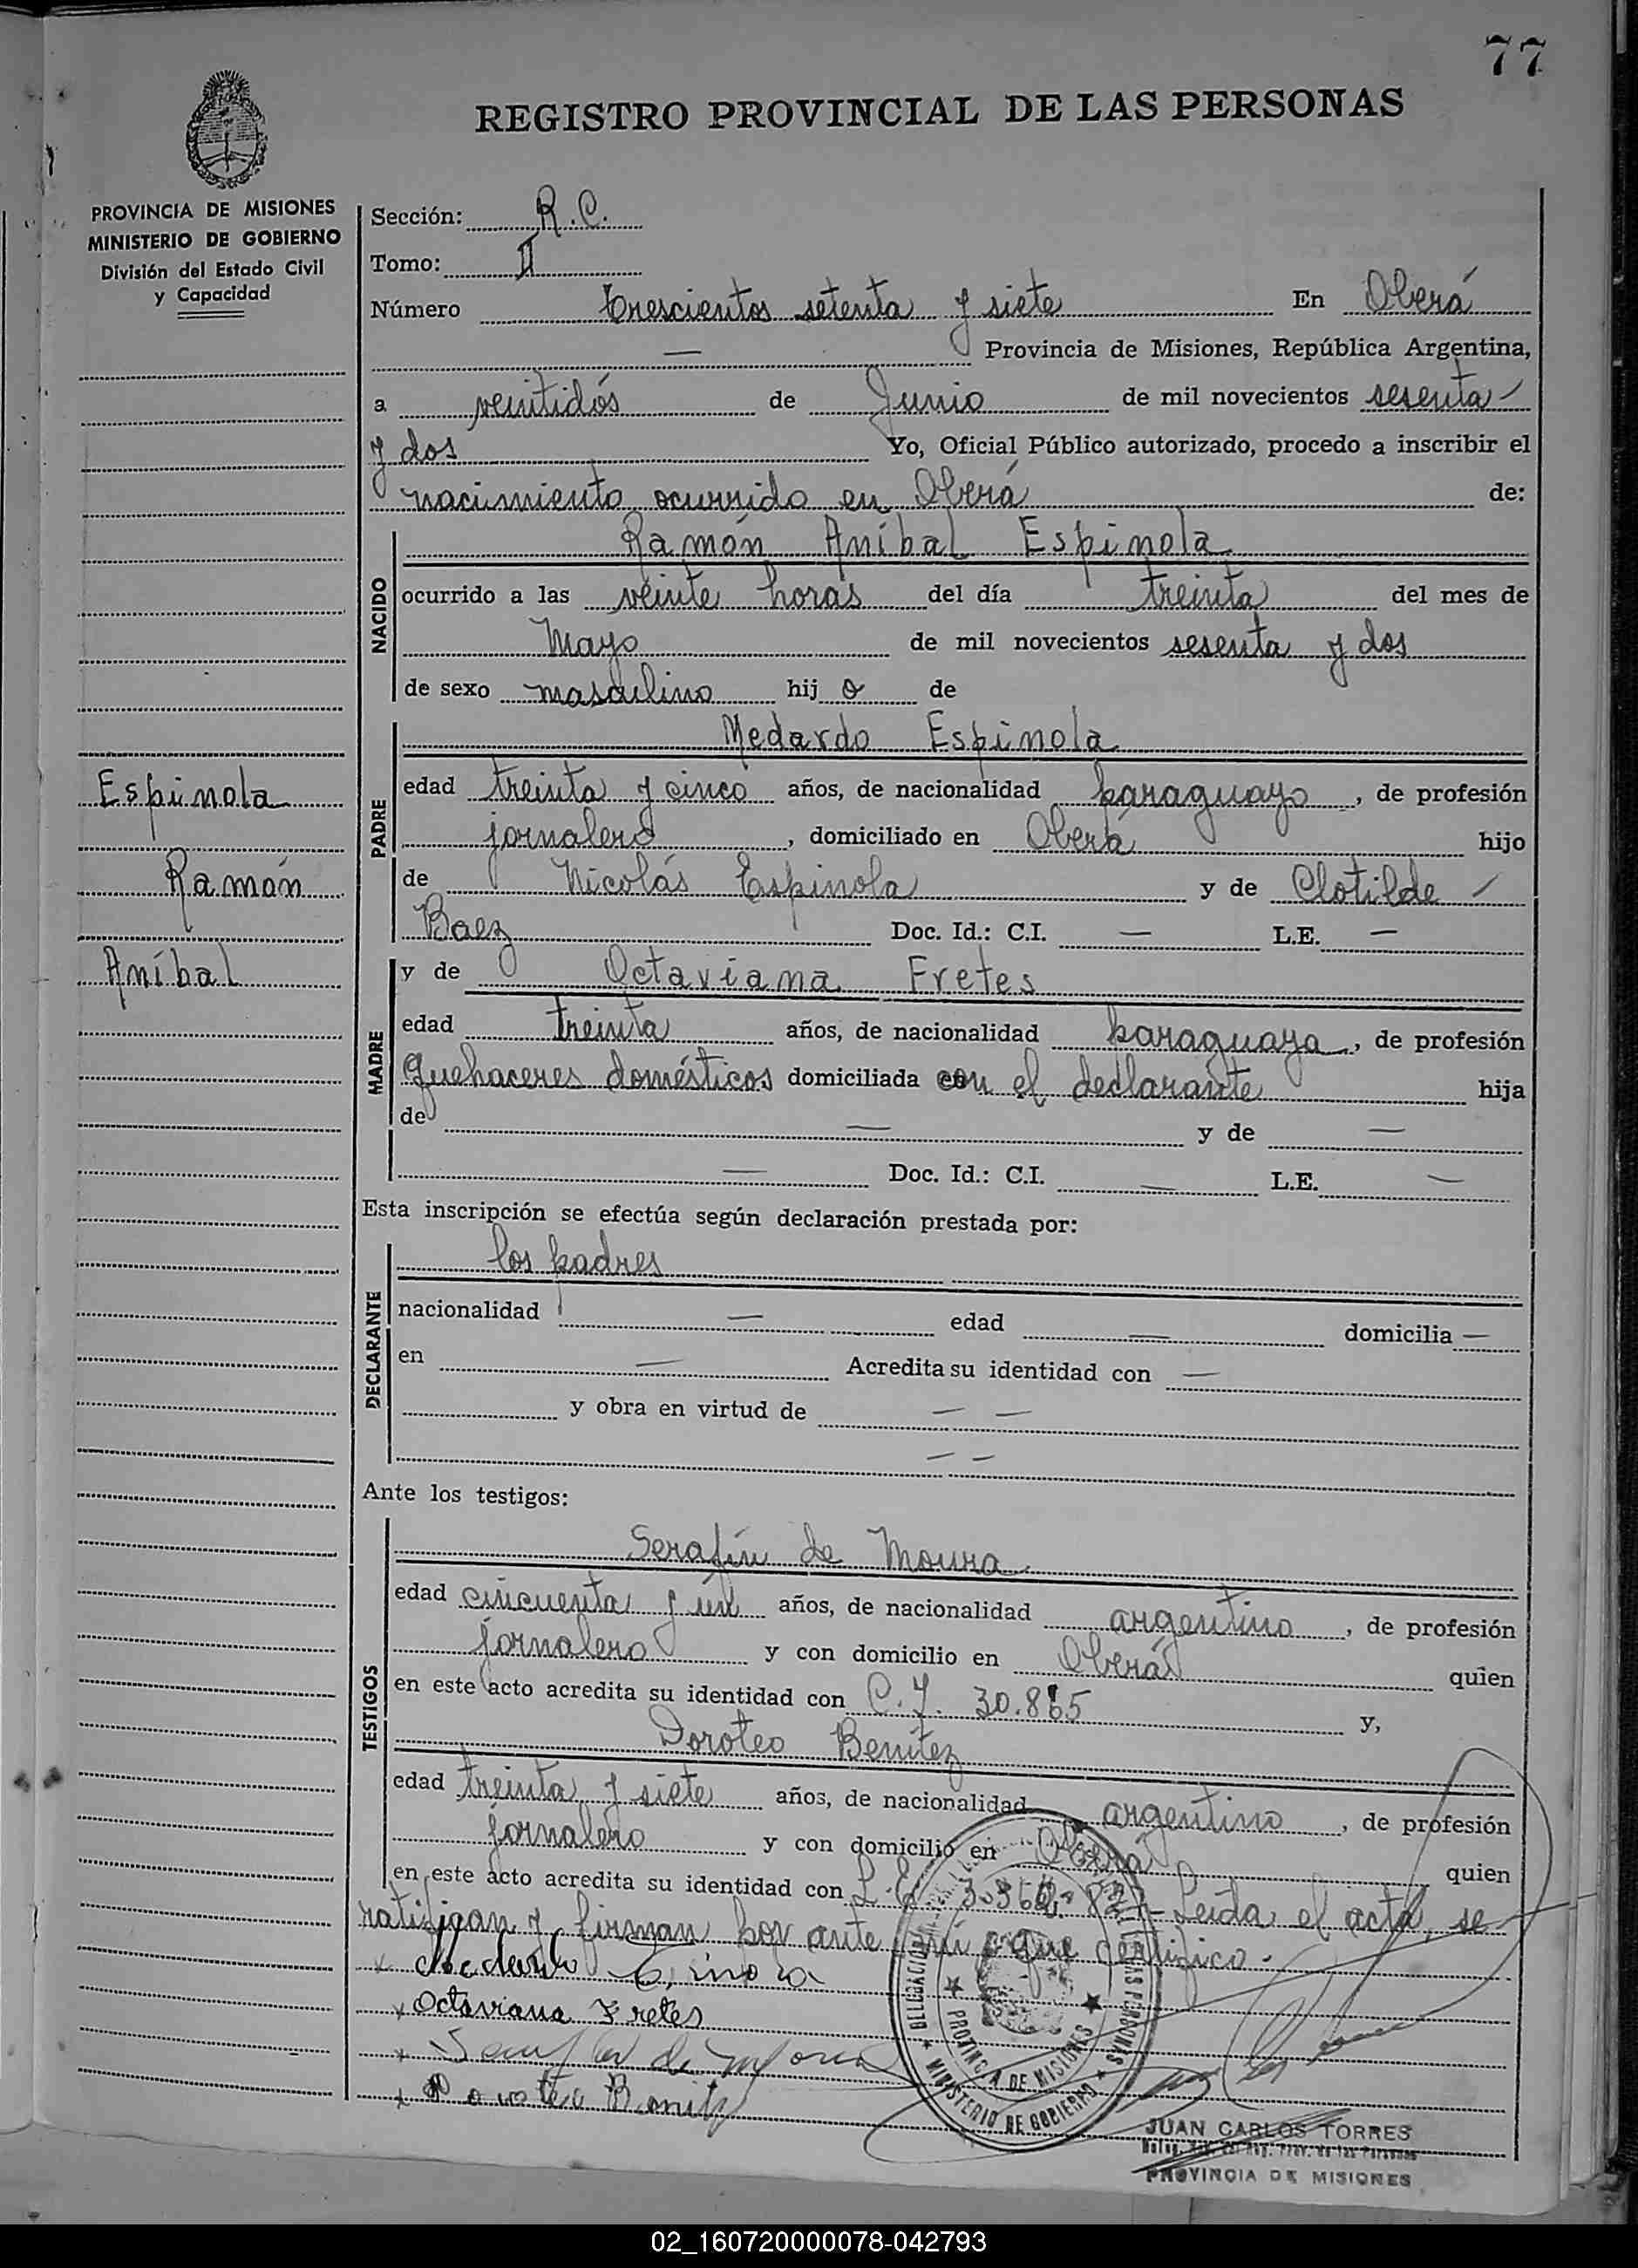 77
REGISTRO PROVINCIAL DE LAS PERSONAS
PROVINCIA DE MISIONES
MINISTERIO DE GOBIERNO
División del Estado Civil
y Capacidad
Espinola
Ramón
Aníbal
Sección: R.C.
Tomo: II
Número trescientos setenta y siete En Oberá
— Provincia de Misiones, República Argentina,
a veintidós de Junio de mil novecientos sesenta
y dos Yo, Oficial Público autorizado, procedo a inscribir el
nacimiento ocurrido en Oberá de:
NACIDO
Ramón Aníbal Espinola
ocurrido a las veinte horas del día treinta del mes de
Mayo de mil novecientos sesenta y dos
de sexo masculino hijo de
PADRE
Medardo Espinola
edad treinta y cinco años, de nacionalidad paraguayo, de profesión
jornalero, domiciliado en Oberá hijo
de Nicolás Espinola y de Clotilde
Baez Doc. Id.: C.I. — L.E. —
MADRE
y de Octaviana Fretes
edad treinta años, de nacionalidad paraguaya, de profesión
quehaceres domésticos domiciliada con el declarante hija
de — y de —
— Doc. Id.: C.I. — L.E. —
Esta inscripción se efectúa según declaración prestada por:
DECLARANTE
los padres
nacionalidad — edad — domicilia —
en — Acredita su identidad con —
y obra en virtud de — —
— —
Ante los testigos:
TESTIGOS
Serafín de Moura
edad cincuenta y un años, de nacionalidad argentino, de profesión
jornalero y con domicilio en Oberá quien
en este acto acredita su identidad con C.I. 30.865 y,
Doroteo Benítez
edad treinta y siete años, de nacionalidad argentino, de profesión
jornalero y con domicilio en Oberá quien
en este acto acredita su identidad con L.E. Leída el acta, se
ratifican y firman por ante mí que certifico.
x Medardo
x Octaviana Fretes
x de
x Doroteo Benitz
DELEGACION
LAS PERSONAS
PROVINCIA DE MISIONES
MINISTERIO DE GOBIERNO
JUAN CARLOS TORRES
PROVINCIA DE MISIONES
02_160720000078-042793